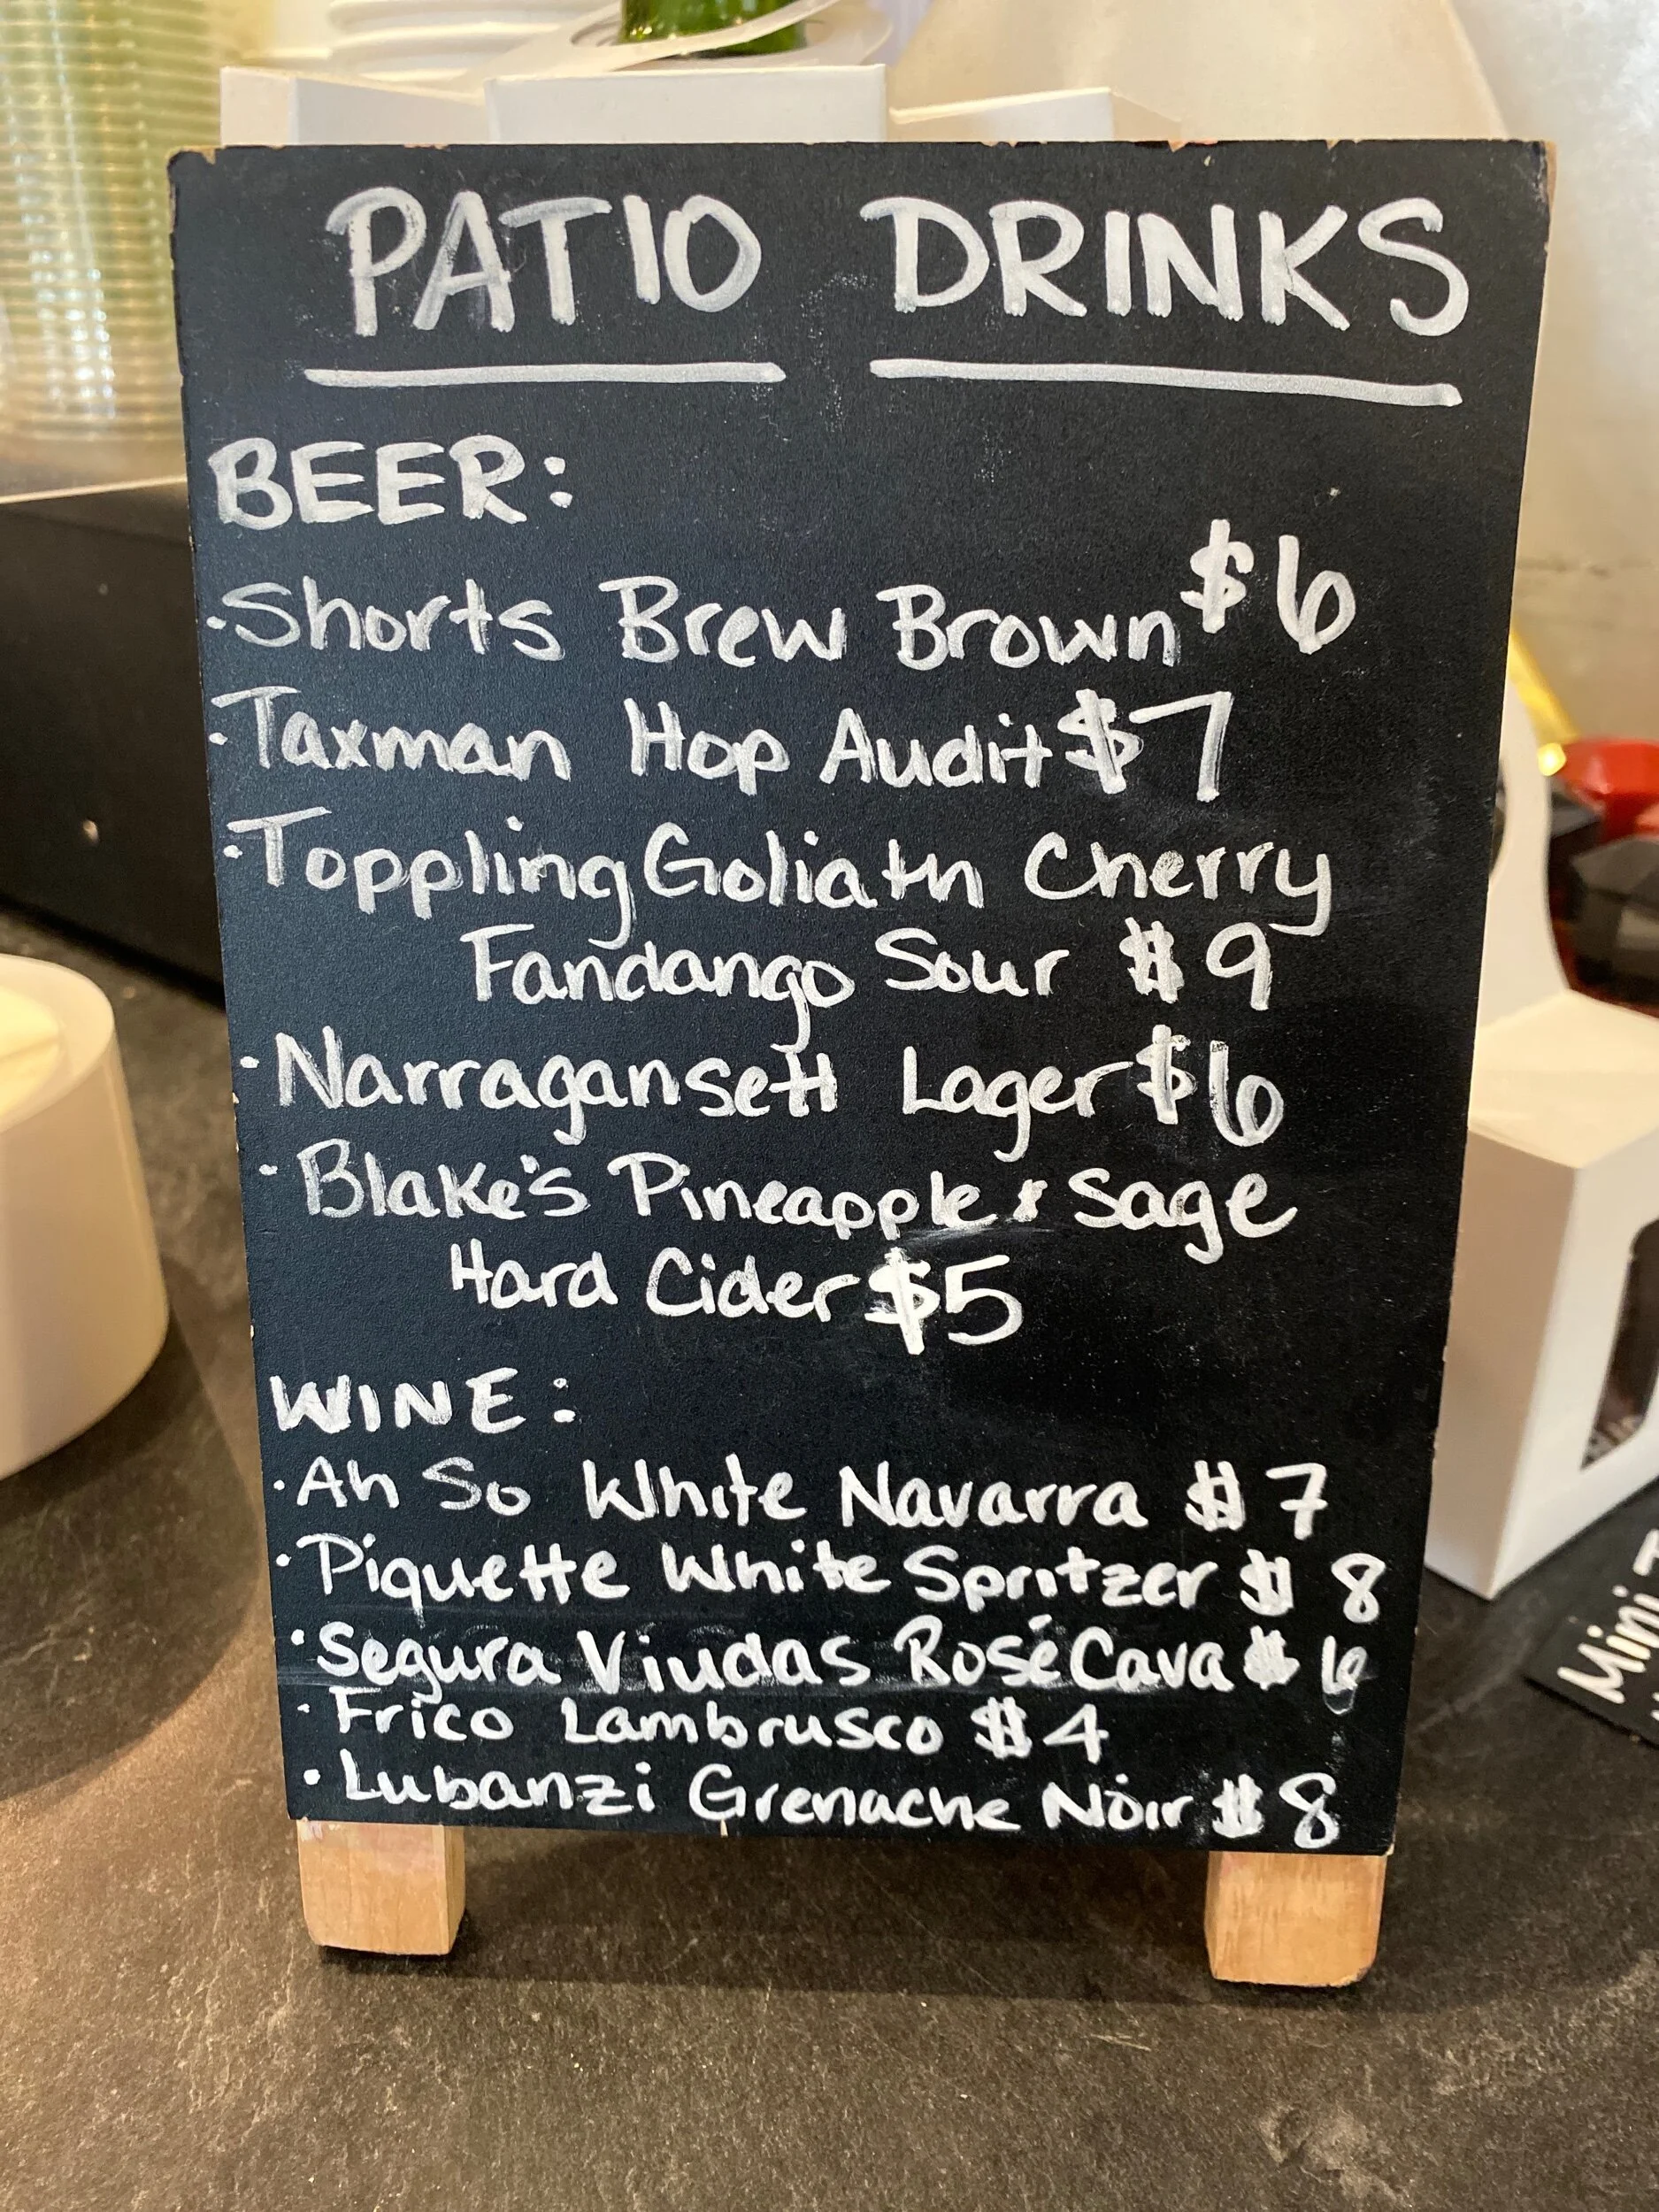 PATIO DRINKS
BEER:
·Shorts Brew Brown $6
·Taxman Hop Audit $7
·Toppling Goliath Cherry
Fandango Sour $9
·Narragansett Lager $6
·Blake's Pineapple & Sage
Hard Cider $5
WINE:
·Ah So White Navarra $7
·Piquette White Spritzer $8
·Segura Viudas Rosé Cava $6
·Frico Lambrusco $4
·Lubanzi Grenache Noir $8
Mini